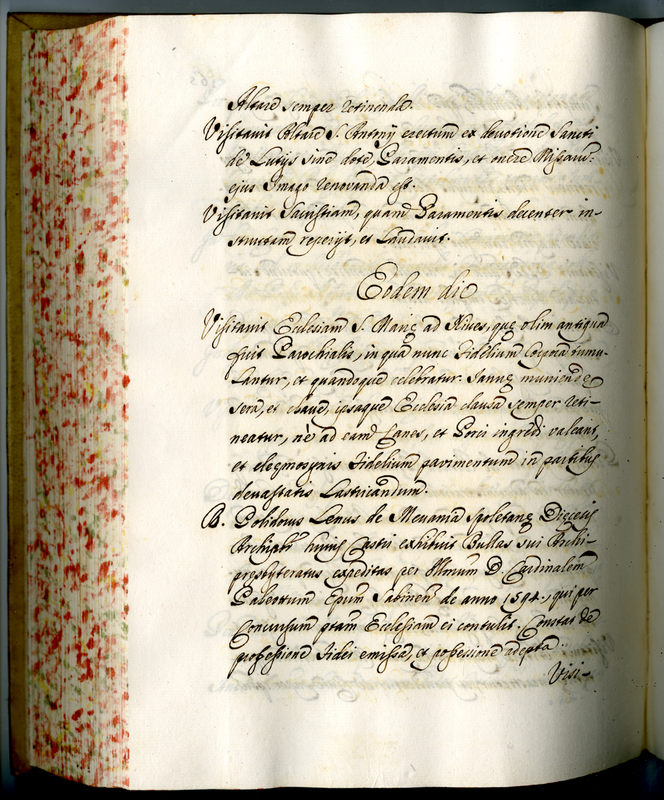 Altare semper retinendæ.
Visitavit Altare S. Antonij erectum ex devotione Sancti
de Lutijs sine dote Paramentis, et onere Missarū:
ejus Imago renovanda est.
Visitavit Sacristiam, quam Paramentis decenter in-
structam reperijt, et laudavit.
Eodem die
Visitavit Ecclesiam S. Marię ad Nives, quę olim antiqua
fuit Parochialis, in quâ nunc Fidelium Corpora tumu-
lantur, et quandoque celebratur. Ianuę muniendę
sera, et clave, ipsaque Ecclesia clausa semper reti-
neatur, nè ad eam Canes, et Porci ingredi valeant,
et eleęmosynis Fidelium pavimentum in partibus
devastatis lastricandum.
B. Polidorus Lenus de Mevania Spoletanę Dięcesis
Archipbr̃ huius Castri exhibuit Bullas sui Archi-
presbyteratus expeditas per Illmum D. Cardinalem
Paleottum Epum Sabinen̄ de anno 1594., qui per
Concursum ptam Ecclesiam ei contulit. Constat de
professione Fidei emissa, et possessione adepta.
Visi-